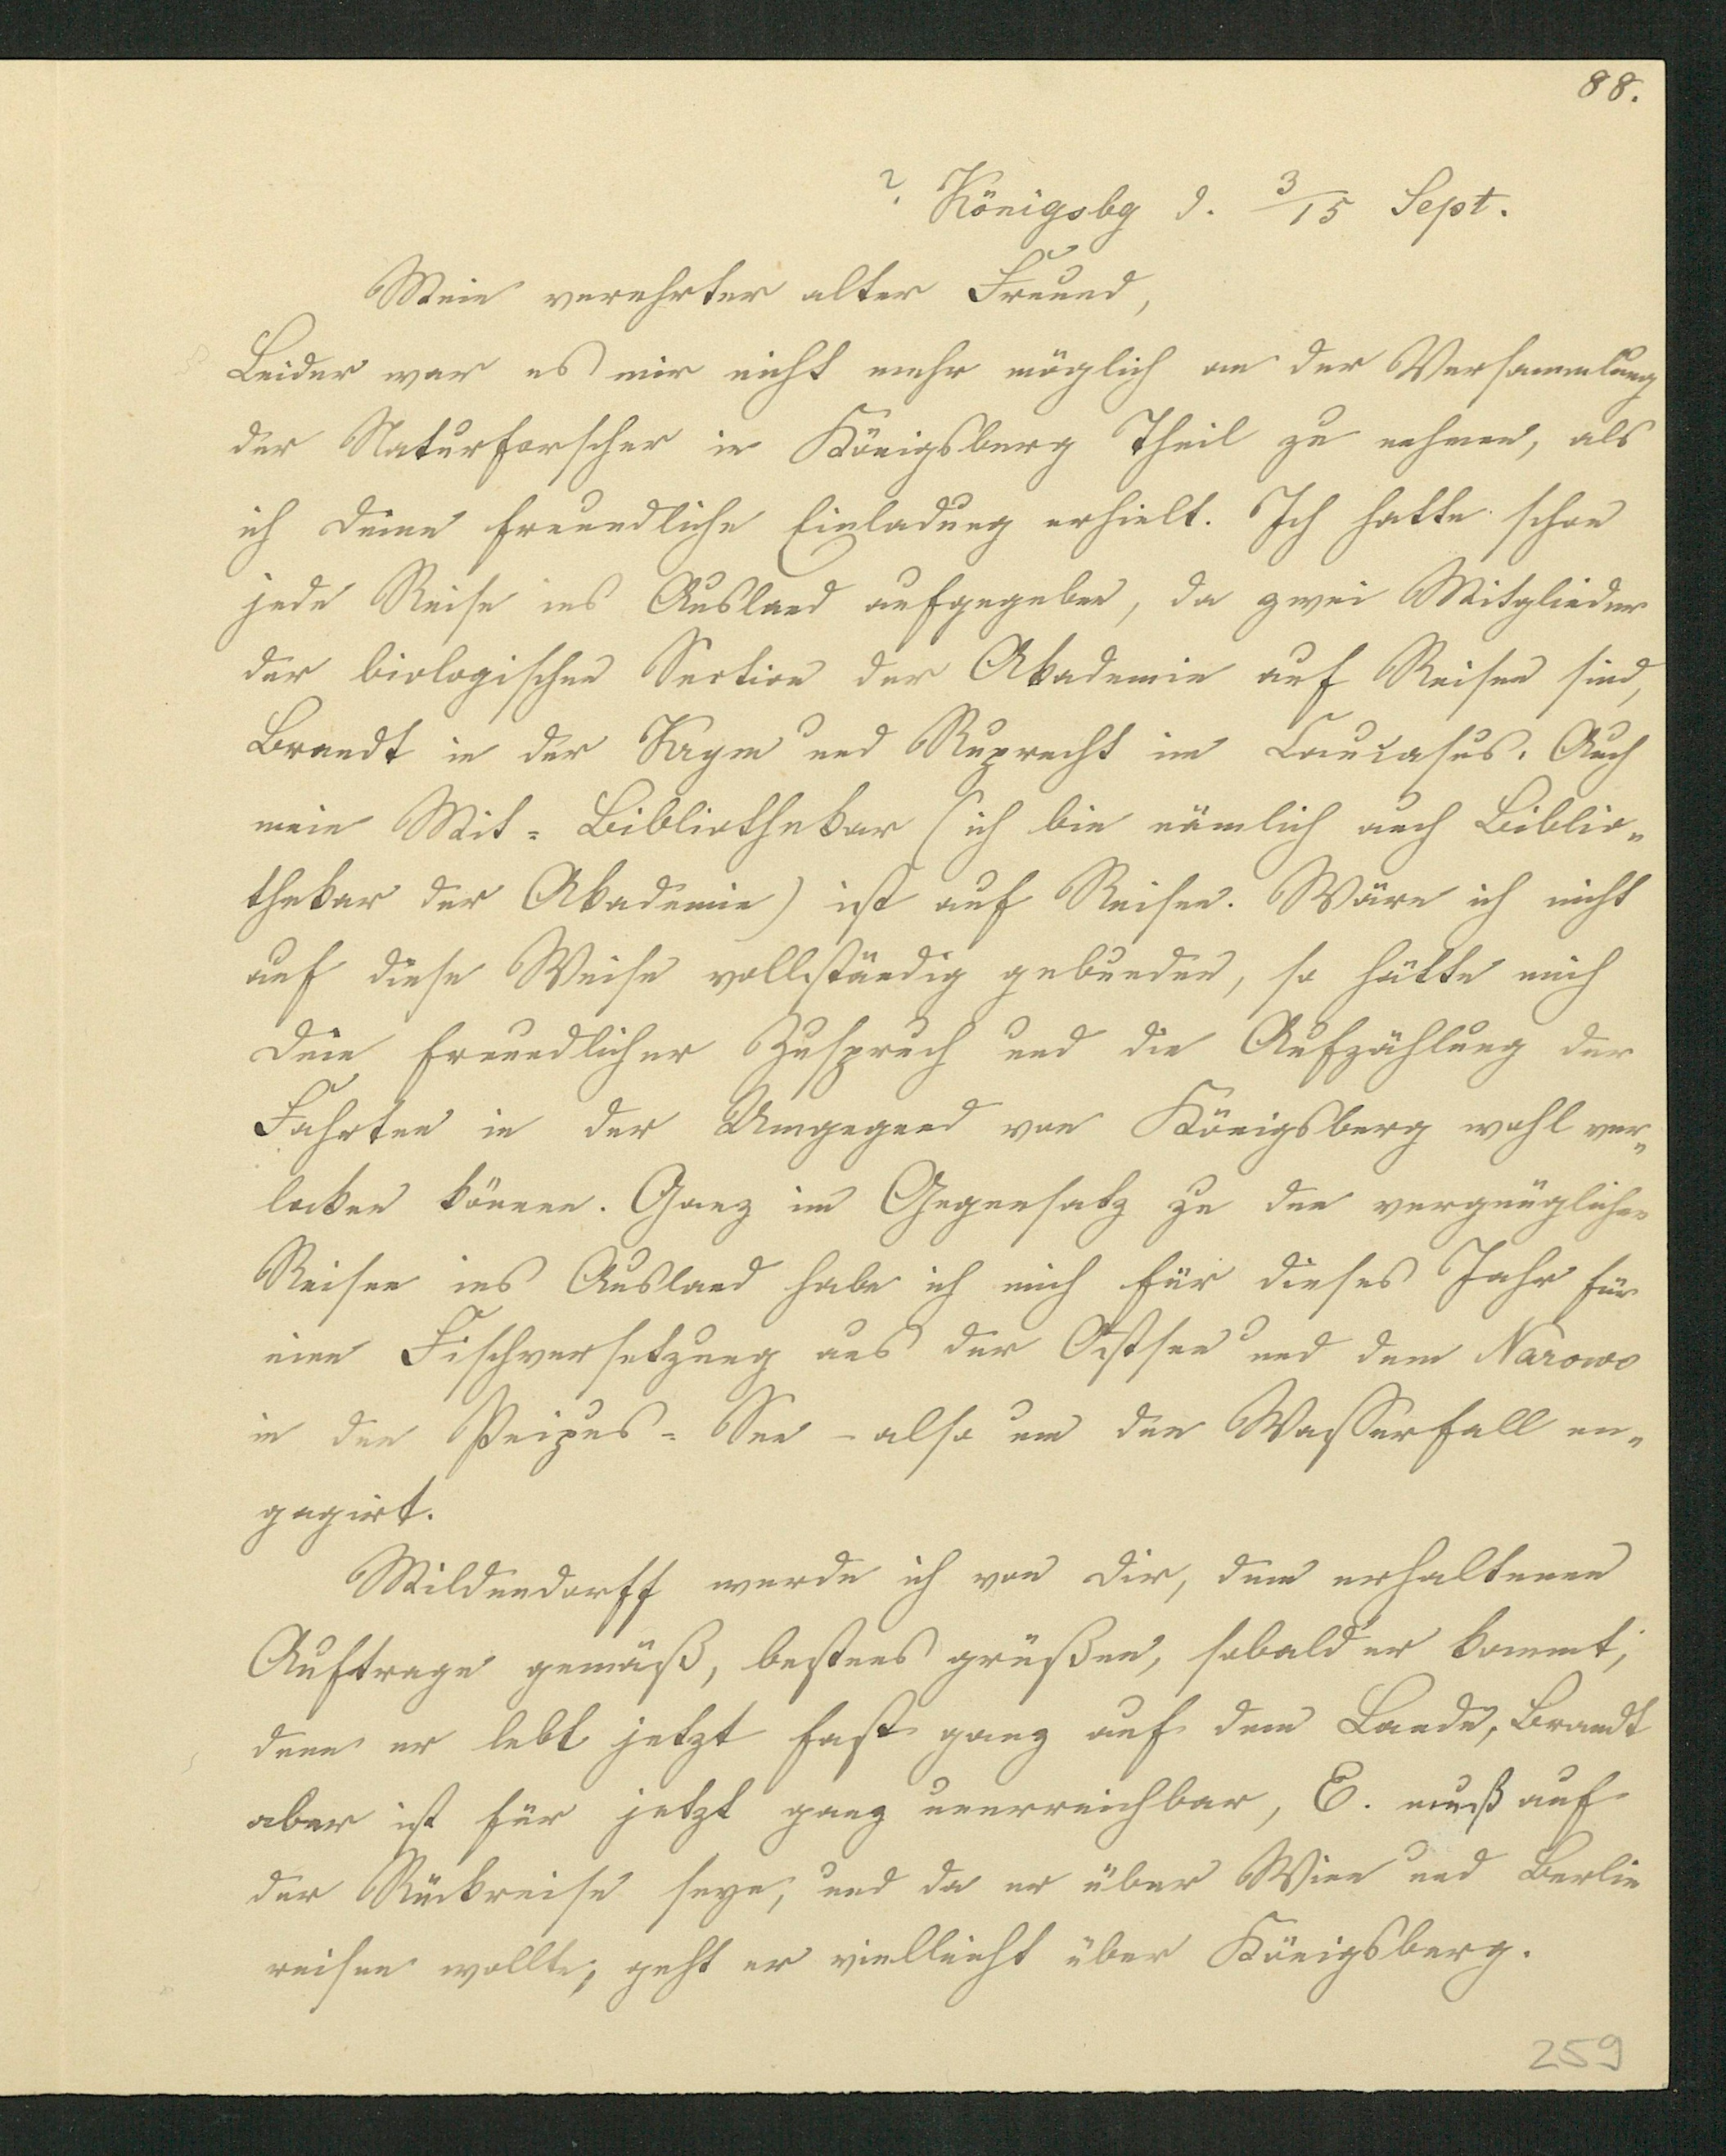 88.
? Königsbg d. 3/15 Sept.
Mein verehrter alter Freund,
Leider war es mir nicht mehr möglich an der Versammlung
der Naturforscher in Königsberg Theil zu nehmen, als
ich Deine freundliche Einladung erhielt. Ich hatte schon
jede Reise ins Ausland aufgegeben, da zwei Mitglieder
der biologischen Section der Akademie auf Reisen sind,
Brandt in der Krym und Ruprecht im Caucasus. Auch
mein Mit-Bibliothekar (ich bin nämlich auch Biblio-
thekar der Akademie) ist auf Reisen. Wäre ich nicht
auf diese Weise vollständig gebunden, so hätte mich
Dein freundlicher Zuspruch und die Aufzählung der
Fahrten in der Umgegend von Königsberg wohl ver-
locken können. Ganz im Gegensatz zu den vergnüglichen
Reisen ins Ausland habe ich mich für dieses Jahr für
eine Fischversetzung aus der Ostsee und dem Narowo
in den Peipus-See - also um den Wasserfall en-
gagirt.
Mildendorff werde ich von Dir, dem erhaltenen
Auftrage gemäß, bestens grüßen, sobald er kommt;
denn er lebt jetzt fast ganz auf dem Lande, Brandt
aber ist für jetzt ganz unerreichbar, E. muß auf
der Rückreise seyn, und da er über Wien und Berlin
reisen wollte, geht er vielleicht über Königsberg.
259